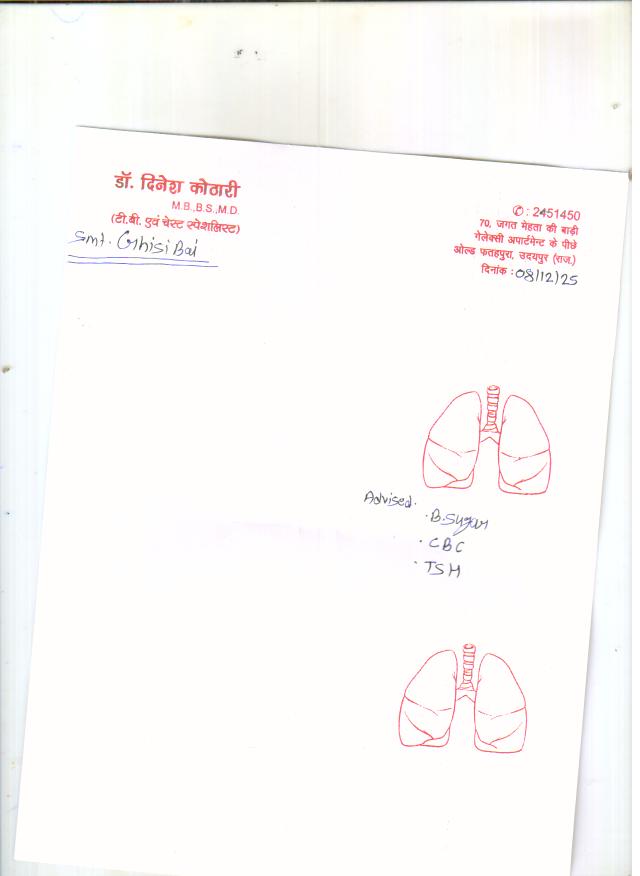 डॉ. दिनेश कोठारी
M.B.,B.S.,M.D.
(टी.बी. एवं चेस्ट स्पेशलिस्ट)
Smt. Ghisi Bai
✆ : 2451450
70, जगत मेहता की बाड़ी
गेलेक्सी अपार्टमेन्ट के पीछे
ओल्ड फतहपुरा, उदयपुर (राज.)
दिनांक : 08/12/25
Advised.
· B.Sugar
· CBC
· TSH